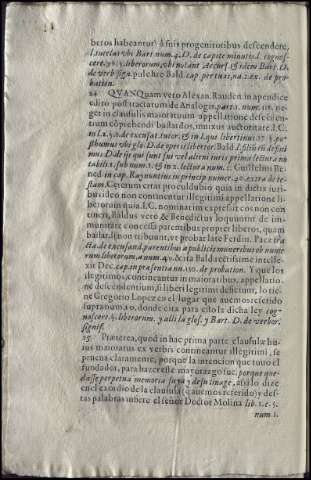 beros habeantur à suis progenitoribus descendere,
l. tutelas vbi Bart. num. 4. D. de capite minutis l. cognos-
cere, 56. §. liberorum, vbi notant Accurs. & idem Bart. D.
de verb. sign. pulchre Bald. cap. per tuas, na. 2. ex. de pro-
bation.
24 QVANQuam vero Alexan. Rauden. in appendice
edito post tractatum de Analogis, part. 1. num. 118. ne-
get in clausulis maioratuum appellatione descenden-
tium cōprehendi bastardos, innixus auctoritate I. C.
in l. 2. §.
filium definimus
D. de ijs qui sunt sui vel alieni iuris prima lectura no-
tabili 2. sub num. 1. & in 2. lectura num. 1. Guillelmi Be-
ned. in cap. Raynuntius in princip. numer. 40. extra de te-
stam. Ceterum citra procul dubio quia in dictis iuri-
bus ideo non continentur illegitimi appellatione li-
berorum quia I. C. nominatim expressit eos non con-
tineri, Baldus vero & Benedictus loquuntur de im-
munitate concessa parentibus propter liberos, quam
bastardis non tribuunt, vt probat late Ferdin. Paz tra-
cta de excusand. parentibus à publicis muneribus ob nume-
rum liberorum, à num. 40. & ita Bald. rectissime intelle-
xit Dec. cap. in præsentia nu. 130. de probation. Y que los
illegitimos, contineantur in maioratibus, appellatio-
ne descendentium, si liberi legitimi deficiunt, lo tie-
ne Gregorio Lopez en el lugar que auemos referido
supra num. 20. donde cita para esto la dicha ley cog-
noscere. §. liberorum. y alli la glos. y Bart. D. de verbor.
signif.
25 Præterea, quod in hac prima parte clausulæ hu-
ius maioratus ex verbis contineantur illegitimi, se
prueua claramente, porque la intencion que tuuo el
fundador, para hazer este mayorazgo fue, porque que-
dasse perpetua memoria suya y de su linage, assi lo dize
en el exordio de la clausula (que auemos referido) y de
stas palabras infiere el señor Doctor Molina lib. 1. c. 5.
num 1.